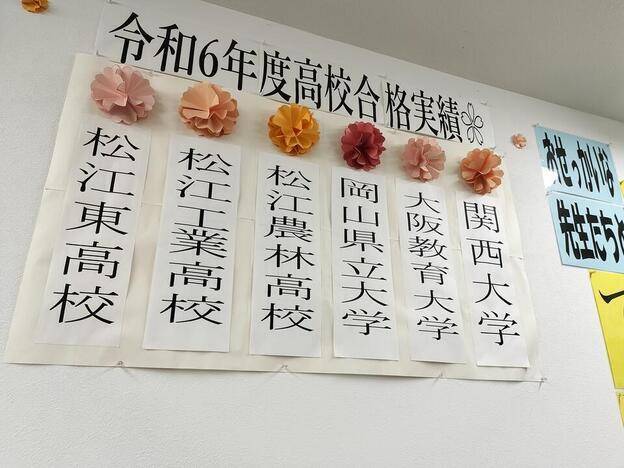 令和6年度高校合格実績
関西大学
大阪教育大学
岡山県立大学
松江農林高校
松江工業高校
松江東高校
おせっかいな
先生たち